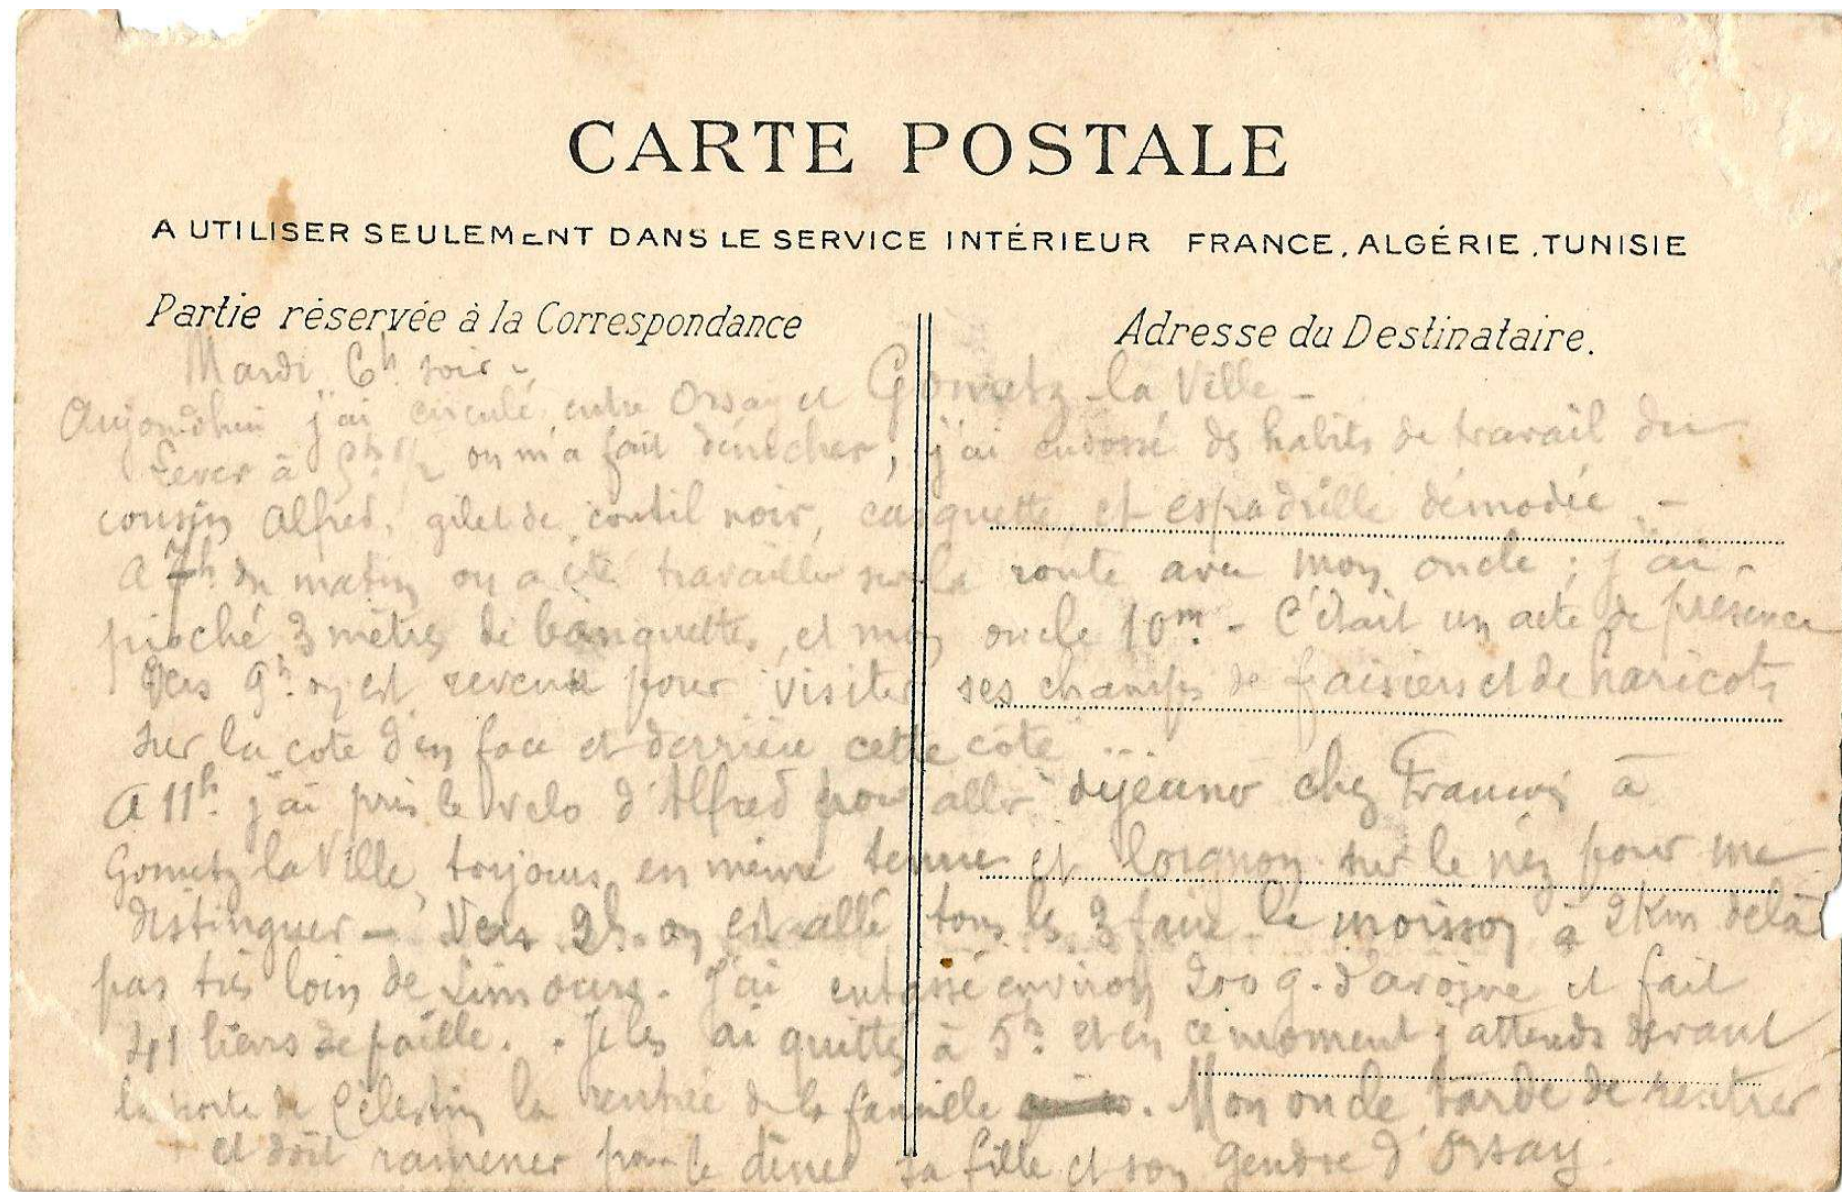 CARTE POSTALE
A UTILISER SEULEMENT DANS LE SERVICE INTÉRIEUR FRANCE, ALGÉRIE, TUNISIE
Partie réservée à la Correspondance
Adresse du Destinataire.
Mardi 6h. soir -
Aujourdhui j'ai circulé entre Orsay et Gometz-la Ville -
Lever à 5h 1/2 on m'a fait dénicher, j'ai endossé ds habits de travail du
cousin Alfred, gilet de coutil noir, casquette et espadrille démodée. -
A 7h. du matin on a été travailler sur la route avec mon oncle ; j'ai
pioché 3 mètres de banquette, et mon oncle 10m. - C'était un acte de présence
Vers 9h. on est revenu pour visiter ses champs de fraisiers et de haricots
sur la cote d'en face et derrière cette côte ...
A 11h. j'ai pris le velo d'Alfred pour aller déjeuner chez François à
Gometz la Ville, toujours en même tenue et lorgnon sur le nez pour me
distinguer - Vers 2h. on est allé tous ls 3 faire la moisson à 2 Km delà
pas très loin de Limours. J'ai entassé environ 200 g. d'avoine et fait
41 liens de paille. . Je les ai quittés à 5h. et en ce moment j'attends devant
la porte de Célestin la rentrée de la famille. Mon oncle tarde de rentrer
et doit ramener pour le dîner sa fille et son gendre d'Orsay.